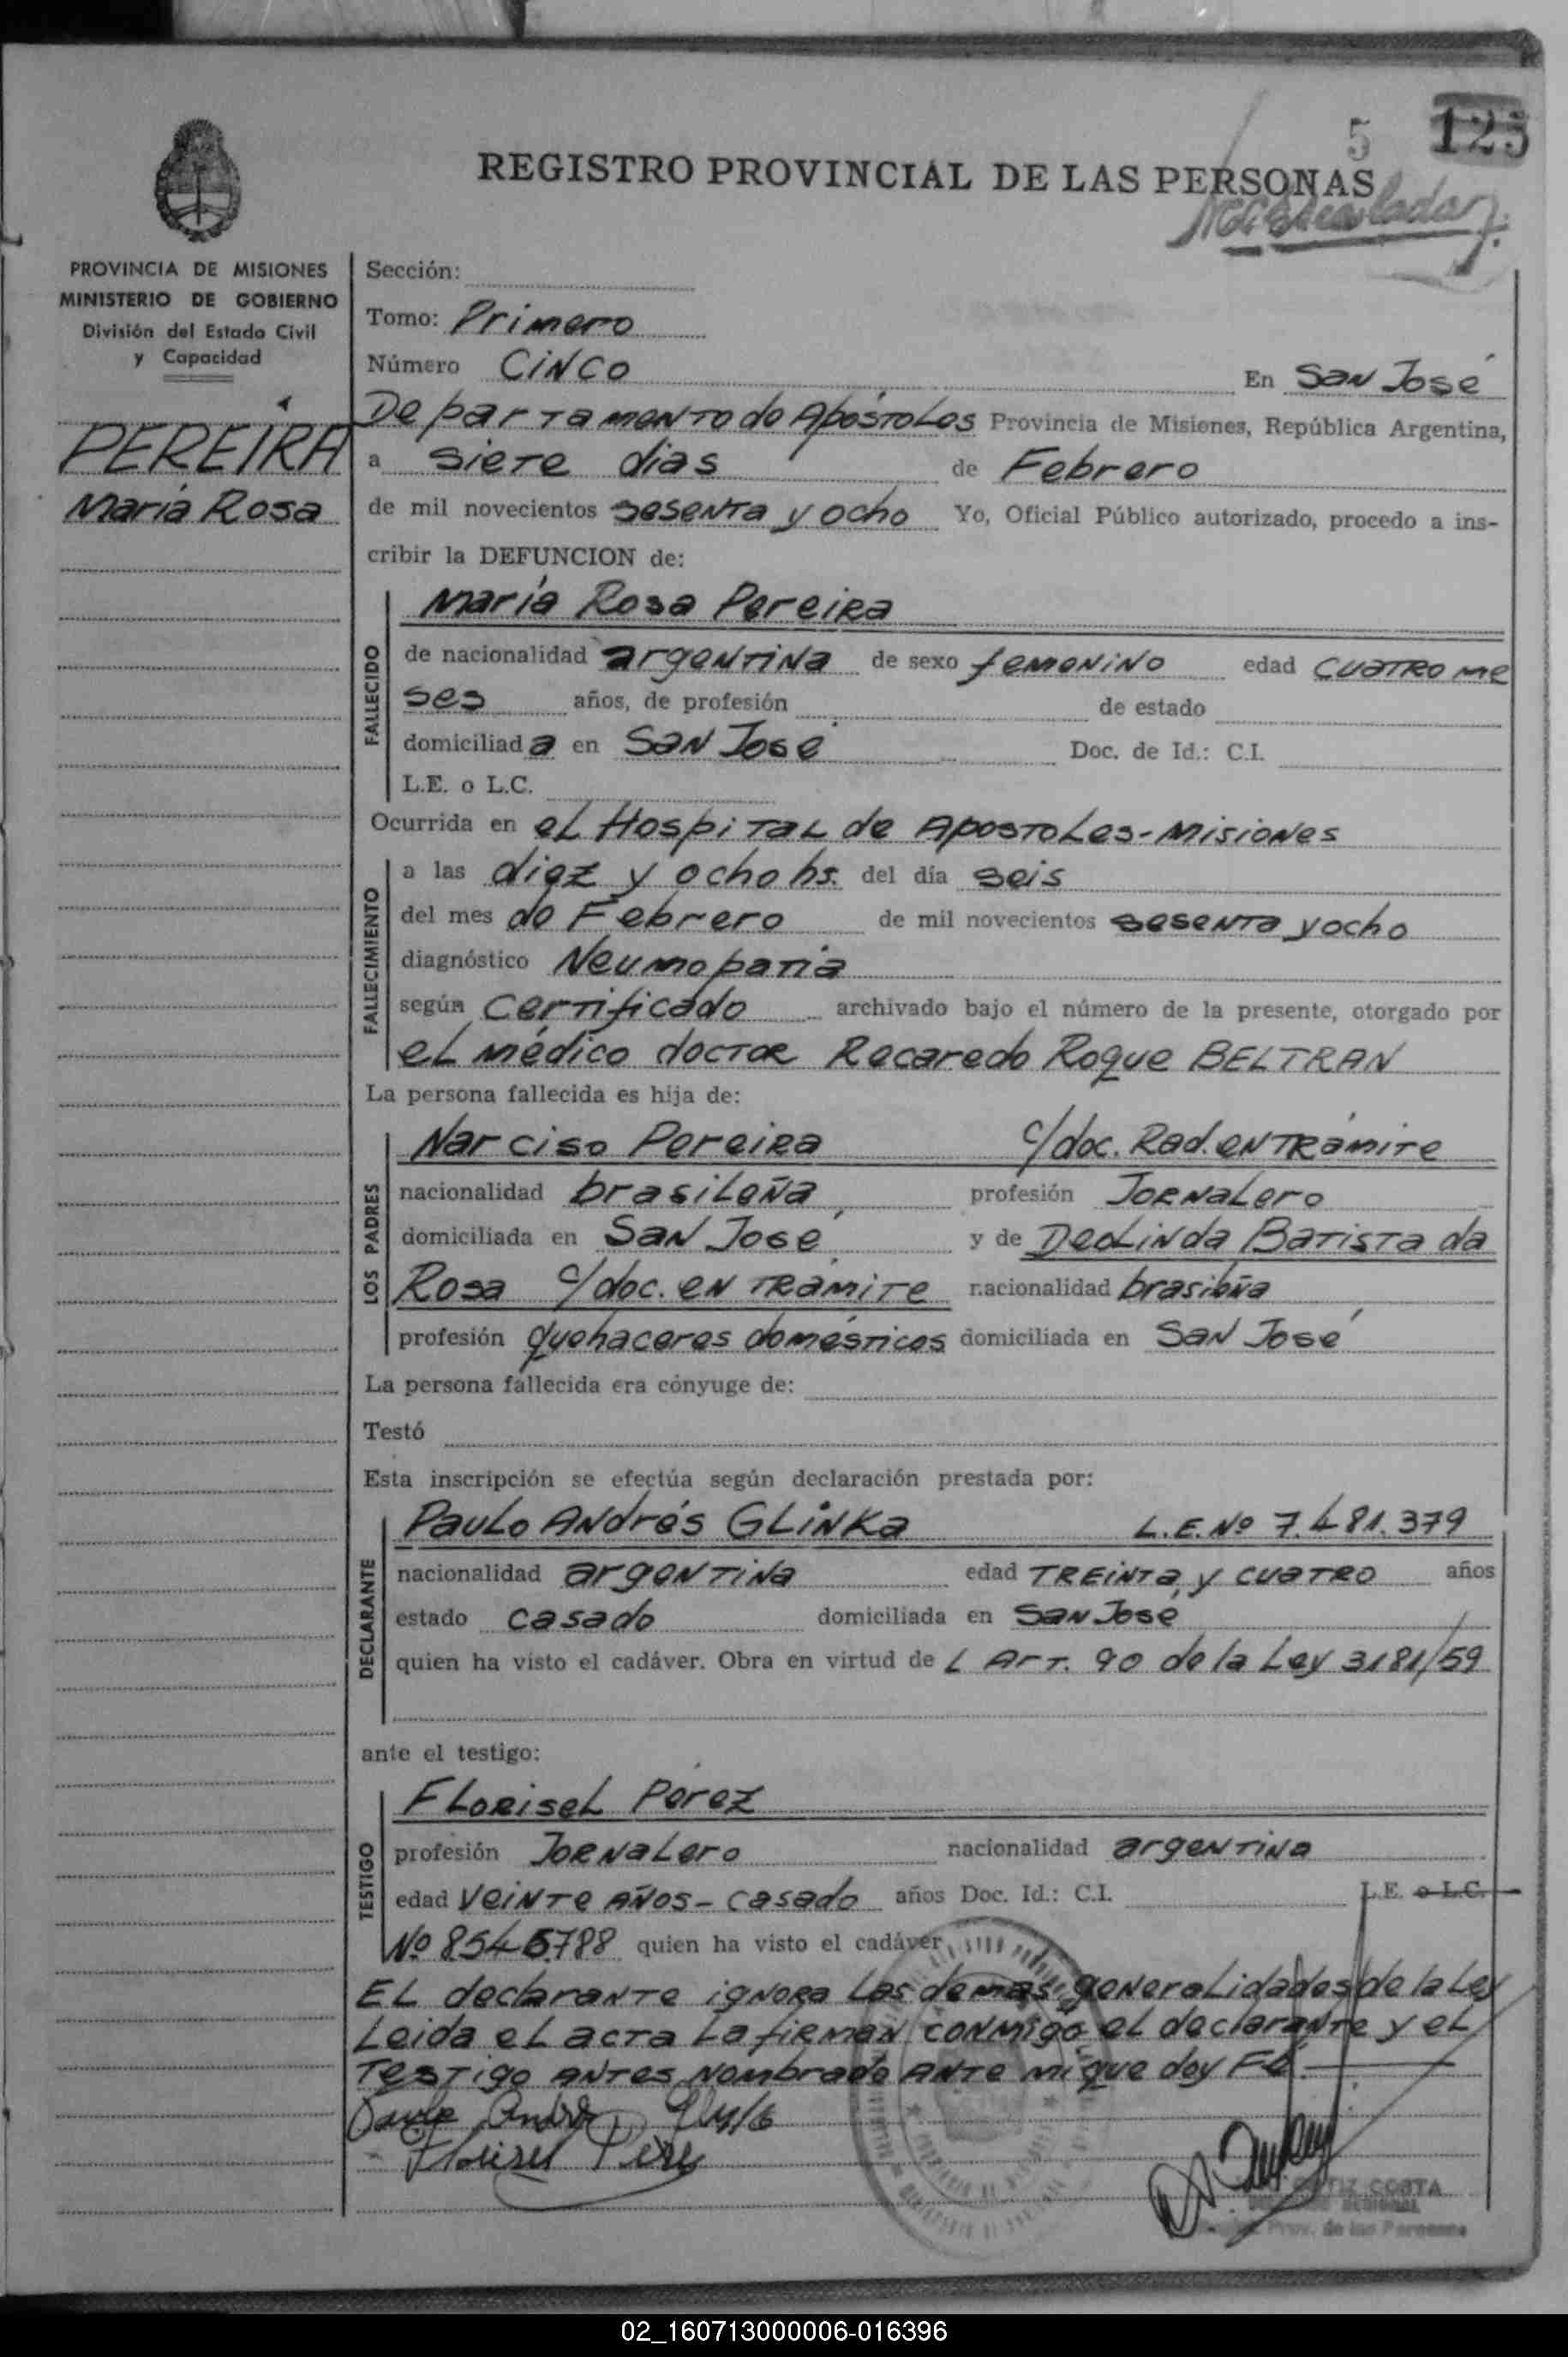 5 125
REGISTRO PROVINCIAL DE LAS PERSONAS
PROVINCIA DE MISIONES
MINISTERIO DE GOBIERNO
División del Estado Civil
y Capacidad
PEREIRA
María Rosa
Sección:
Tomo: Primero
Número CINCO En San José
Departamento de Apóstoles Provincia de Misiones, República Argentina,
a siete dias de Febrero
de mil novecientos sesenta y ocho Yo, Oficial Público autorizado, procedo a ins-
cribir la DEFUNCION de:
FALLECIDO
María Rosa Pereira
de nacionalidad argentina de sexo femenino edad cuatro me
ses años, de profesión de estado
domiciliada en San José Doc. de Id.: C.I.
L.E. o L.C.
Ocurrida en el Hospital de Apostoles-Misiones
FALLECIMIENTO
a las diez y ocho hs. del día seis
del mes de Febrero de mil novecientos sesenta y ocho
diagnóstico Neumopatia
según certificado archivado bajo el número de la presente, otorgado por
el médico doctor Recaredo Roque BELTRAN
La persona fallecida es hija de:
LOS PADRES
Narciso Pereira c/doc. Rad. en trámite
nacionalidad brasileña profesión Jornalero
domiciliada en San José y de Deolinda Batista da
Rosa c/doc. en trámite nacionalidad brasileña
profesión quehaceres domésticos domiciliada en San José
La persona fallecida era cónyuge de:
Testó
Esta inscripción se efectúa según declaración prestada por:
DECLARANTE
Paulo Andrés GLINKA L.E. Nº 7.481.379
nacionalidad argentina edad treinta y cuatro años
estado casado domiciliada en San José
quien ha visto el cadáver. Obra en virtud de l Art. 90 de la Ley 3181/59
ante el testigo:
TESTIGO
Florisel Perez
profesión Jornalero nacionalidad argentina
edad veinte años - casado años Doc. Id.: C.I. L.E. o L.C.
Nº 8.545.788 quien ha visto el cadáver
El declarante ignora las demas generalidades de la Ley
Leida el acta la firman conmigo el declarante y el
testigo antes nombrado ante mi que doy Fé.
Florisel Perez
ORTIZ COSTA
Prov. de las Personas
02_160713000006-016396